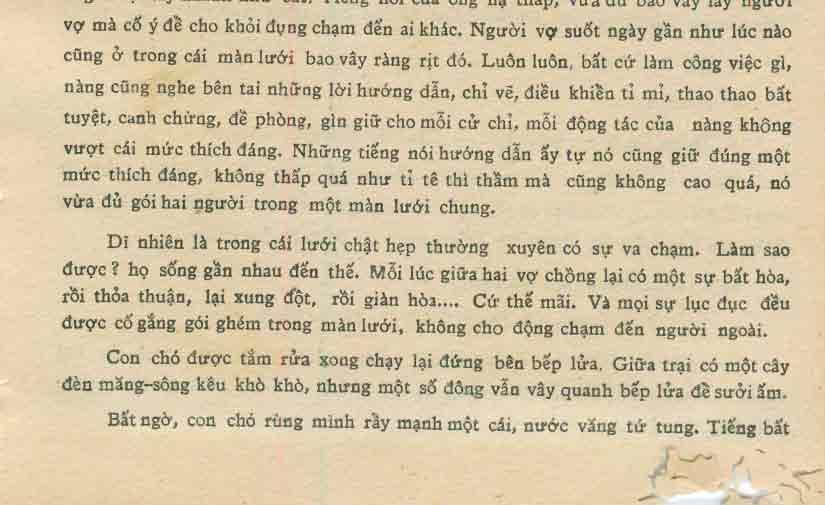 vợ mà cố ý để cho khỏi đụng chạm đến ai khác. Người vợ suốt ngày gần như lúc nào
cũng ở trong cái màn lưới bao vây ràng rịt đó. Luôn luôn, bất cứ làm công việc gì,
nàng cũng nghe bên tai những lời hướng dẫn, chỉ vẽ, điều khiển tỉ mỉ, thao thao bất
tuyệt, canh chừng, đề phòng, gìn giữ cho mỗi cử chỉ, mỗi động tác của nàng không
vượt cái mức thích đáng. Những tiếng nói hướng dẫn ấy tự nó cũng giữ đúng một
mức thích đáng, không thấp quá như tỉ tê thì thầm mà cũng không cao quá, nó
vừa đủ gói hai người trong một màn lưới chung.
Dĩ nhiên là trong cái lưới chật hẹp thường xuyên có sự va chạm. Làm sao
được? họ sống gần nhau đến thế. Mỗi lúc giữa hai vợ chồng lại có một sự bất hòa,
rồi thỏa thuận, lại xung đột, rồi giàn hòa.... Cứ thế mãi. Và mọi sự lục đục đều
được cố gắng gói ghém trong màn lưới, không cho động chạm đến người ngoài.
Con chó được tắm rửa xong chạy lại đứng bên bếp lửa. Giữa trại có một cây
đèn măng-sông kêu khò khò, nhưng một số đông vẫn vây quanh bếp lửa để sưởi ấm.
Bất ngờ, con chó rùng mình rẩy mạnh một cái, nước văng tứ tung. Tiếng bất